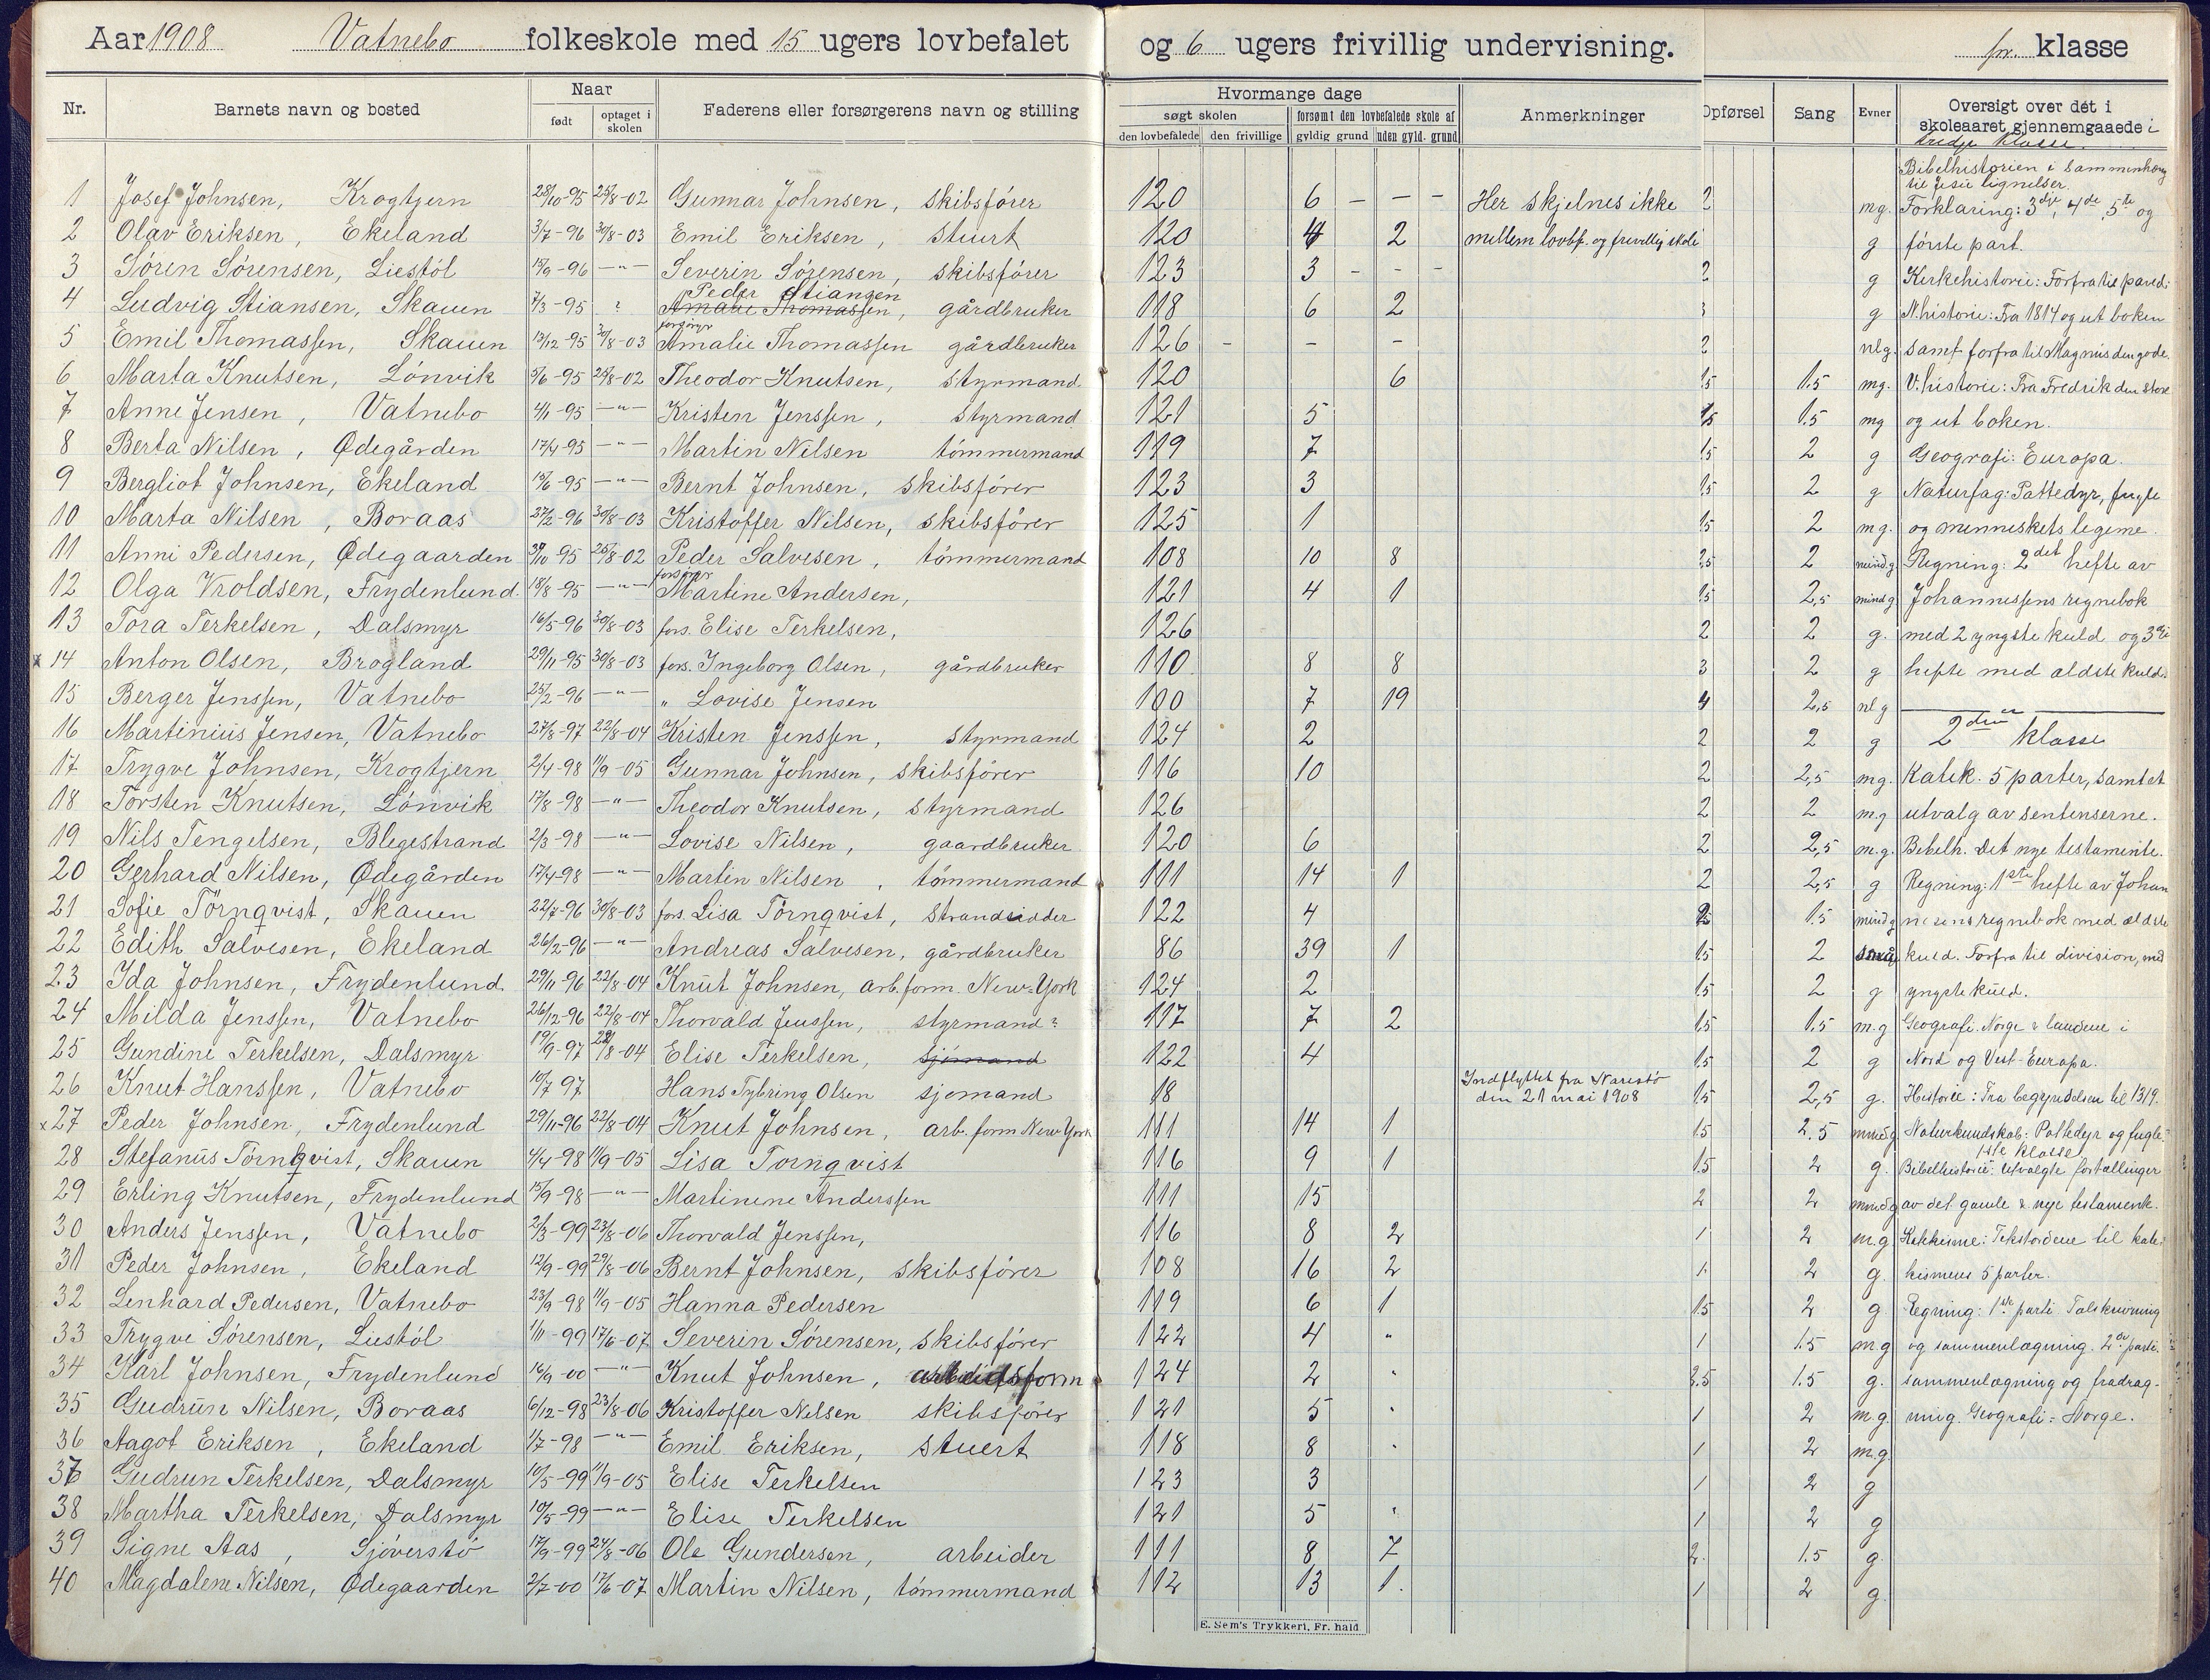 Aar 1908 Vatnebo folkeskole med 15 ugers lovbefalet og 6 ugers frivillig undervisning. fr. klasse
Nr. Barnets navn og bosted Naar født optaget i skolen Faderens eller forsørgerens navn og stilling Hvormange dage søgt skolen den lovbefalede den frivillige forsømt den lovbefalede skole af gyldig grund uden gyld. grund Anmerkninger Opførsel Sang Evner Oversigt over det i skoleaaret gjennemgaaede i
tredje klasse.
Bibelhistorien i sammenhæng
til Jesu lignelser.
1 Josef Johnsen, Krogtjern 28/10-95 25/8-02 Gunnar Johnsen, skibsfører 120 6 — — – Her skjelnes ikke 2 mg. Forklaring: 3dje, 4de, 5te og
2 Olav Eriksen, Ekeland 3/7-96 30/8-03 Emil Eriksen, stuert 120 4 2 mellem lovbf. og frivillig skole g første part.
3 Søren Sørensen, Liestøl 15/9-96 —"— Severin Sørensen, skibsfører 123 3 – – – 2 g Kirkehistorie: Forfra til pared:
4 Ludvig Stiansen, Skauen 7/3-95 ? Peder Stiansen Amalie Thomassen, gårdbruker 118 6 2 3 g N.historie: Fra 1814 og ut boken
5 Emil Thomassen, Skauen 13/12-95 30/8-03 forsørger Amalie Thomassen gårdbruker 126 – – – 2 nlg. samt forfra til Magnus den gode.
6 Marta Knutsen, Lønvik 5/6-95 25/8-02 Theodor Knutsen, styrmand 120 6 1.5 1.5 mg. V.historie: Fra Fredrik den store
7 Anne Jensen, Vatnebo 4/1-95 —"— Kristen Jenssen, styrmand 121 5 1.5 1.5 mg og ut boken.
8 Berta Nilsen, Ødegården 17/4-95 —"— Martin Nilsen tømmermand 119 7 1.5 2 g Geografi: Europa.
9 Bergliot Johnsen, Ekeland 15/6-95 —"— Bernt Johnsen, skibsfører 123 3 1.5 2 g Naturfag: Pattedyr, fugle
10 Marta Nilsen, Boraas 27/2-96 30/8-03 Kristoffer Nilsen, skibsfører 125 1 1.5 2 mg. og menneskets legeme.
11 Anni Pedersen, Ødegaarden 30/10-95 25/8-02 Peder Salvesen, tømmermand 108 10 8 2.5 2 mind.g Regning: 2det hefte av
12 Olga Vroldsen, Frydenlund. 18/8-95 —"— forsørger Martine Andersen, 121 4 1 1.5 2,5 mind g Johannessens regnebok
13 Tora Terkelsen, Dalsmyr 16/5-96 30/8-03 fors. Elise Terkelsen, 126 2 2 g. med 2 yngste kuld og 3dje
x 14 Anton Olsen, Brogland 29/11-95 30/8-03 fors. Ingeborg Olsen, gårdbruker 110 8 8 3 2 g hefte med ældste kuld.
15 Berger Jenssen, Vatnebo 25/2-96 —"— " Lovise Jensen 100 7 19 4 2,5 nlg
16 Martinius Jensen, Vatnebo 27/8-97 22/8-04 Kristen Jenssen, styrmand 124 2 2 2 g 2den klasse
17 Trygve Johnsen, Krogtjern 2/4-98 11/9-05 Gunnar Johnsen, skibsfører 116 10 2 2,5 mg. Katek. 5 parter, samt et
18 Torsten Knutsen, Lønvik 17/8-98 —"— Theodor Knutsen, styrmand 126 2 2 m.g utvalg av sentenserne.
19 Nils Tengelsen, Blegestrand 2/3-98 —"— Lovise Nilsen, gaardbruker 120 6 2 2,5 m.g. Bibelh. Det nye testamente.
20 Gerhard Nilsen, Ødegården 17/4-98 —"— Martin Nilsen, tømmermand 111 14 1 2 2,5 g Regning: 1ste hefte av Johan
21 Sofie Törnqvist, Skauen 22/7-96 30/8-03 fors. Lisa Törnqvist, strandsidder 122 4 2 1.5 mind g nesens regnebok med ældste
22 Edith Salvesen, Ekeland 26/2-96 —"— Andreas Salvesen, gårdbruker 86 39 1 1.5 2 små kuld. Forfra til division, med
23 Ida Johnsen, Frydenlund. 29/11-96 22/8-04 Knut Johnsen, arb.form. New-York 124 2 1.5 2 g yngste kuld.
24 Milda Jenssen, Vatnebo 26/12-96 22/8-04 Thorvald Jenssen, styrmand? 117 7 2 1.5 1.5 m.g Geografi. Norge & landene i
25 Gundine Terkelsen, Dalsmyr 19/9-97 22/8-04 Elise Terkelsen, sjømand 122 4 1.5 2 g Nord og Vest-Europa.
26 Knut Hanssen, Vatnebo 10/7 97 Hans Tybring Olsen sjømand 18 Indflyttet fra Narestø den 21 mai 1908 1.5 2,5 g. Historie: Fra begyndelsen til 1319.
x 27 Peder Johnsen, Frydenlund 29/11-96 22/8-04 Knut Johnsen, arb. form New York 111 14 1 1.5 2.5 mind g Naturkundskab: Pattedyr og fugle.
1ste klasse
28 Stefanus Törnqvist, Skauen 4/4-98 11/9-05 Lisa Tornqvist 116 9 1 1.5 2 g. Bibelhistorie: Utvalgte fortællinger
29 Erling Knutsen, Frydenlund 15/9-98 —"— Martinine Anderssen 111 15 2 2 mindg av det gamle & nye testamente.
30 Anders Jenssen, Vatnebo 2/3-99 23/8-06 Thorvald Jenssen, 116 8 2 1 2 m.g Katekisme: Tekstordene til kate-
31 Peder Johnsen, Ekeland 12/9-99 29/8-06 Bernt Johnsen, skibsfører 108 16 2 1. 2 g. kismens 5 parter.
32 Lenhard Pedersen, Vatnebo 23/9-98 11/9-05 Hanna Pedersen 119 6 1 1.5 2 g Regning: 1ste parti Talskrivning
33 Trygve Sørensen, Liestøl 1/11-99 17/6-07 Severin Sørensen, skibsfører 122 4 " 1 1.5 mg og sammenlægning. 2det parti.
34 Karl Johnsen, Frydenlund 16/9-00 —"— Knut Johnsen, arbeidsform 124 2 " 2.5 1.5 g. sammenlægning og fradrag-
35 Gudrun Nilsen, Boraas 6/12-98 23/8-06 Kristoffer Nilsen skibsfører 121 5 " 1 2 m.g. ning. Geografi: Norge.
36 Aagot Eriksen, Ekeland 1/7-98 —"— Emil Eriksen, stuert 118 8 " 1 2 m.g.
37 Gudrun Terkelsen, Dalsmyr 10/5-99 11/9-05 Elise Terkelsen 123 3 1 2 g
38 Martha Terkelsen, Dalsmyr 10/5-99 —"— Elise Terkelsen 121 5 " 1 2 g
39 Signe Aas, Sjøverstø 17/9-99 24/8-06 Ole Gundersen, arbeider 111 8 7 2. 1.5 g.
40 Magdalene Nilsen, Ødegaarden 2/7-00 17/6-07 Martin Nilsen, tømmermand 112 13 1. 1 2 g.
E. Sem's Trykkeri, Fr. hald